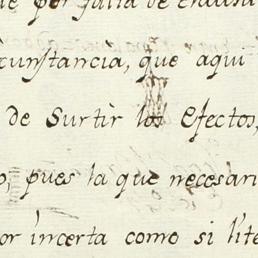 por falta de
cunstancia, que aqui
de Surtir los efectos,
pues la que necesari
or incerta como si lite